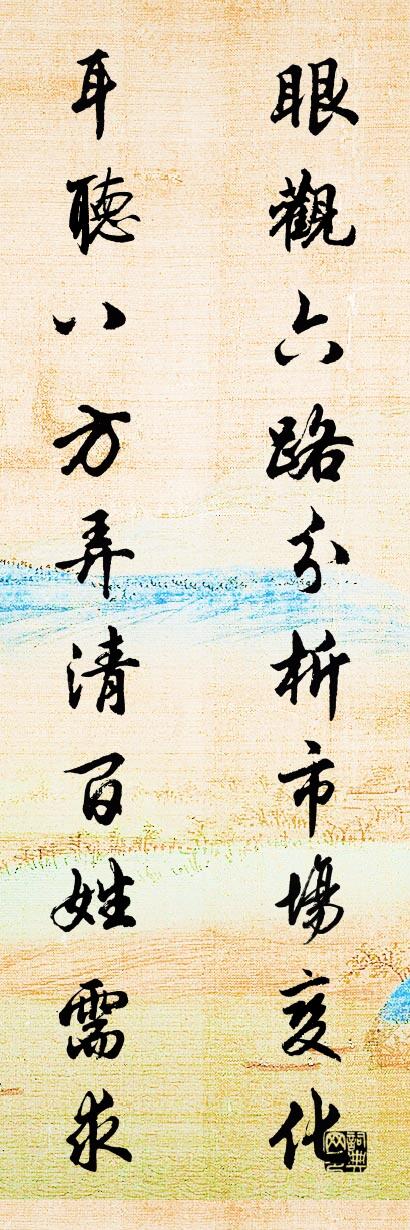 眼觀六路分析市場变化
耳聽八方弄清百姓需求